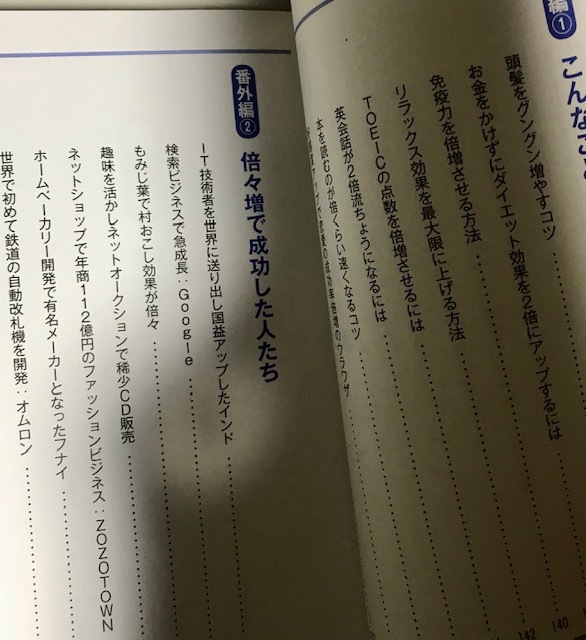 編①
こんなこと
頭髪をグングン増やすコツ
お金をかけずにダイエット効果を2倍にアップするには
免疫力を倍増させる方法
リラックス効果を最大限に上げる方法
TOEICの点数を倍増させるには
英会話が2倍流ちょうになるには
本を読むのが倍くらい速くなるコツ
アップで恋愛の成功率倍増のウラワザ
142
140
番外編②
倍々増で成功した人たち
IT技術者を世界に送り出し国益アップしたインド
検索ビジネスで急成長：Google
もみじ葉で村おこし効果が倍々
趣味を活かしネットオークションで稀少CD販売
ネットショップで年商112億円のファッションビジネス：ZOZOTOWN
ホームベーカリー開発で有名メーカーとなったフナイ
世界で初めて鉄道の自動改札機を開発：オムロン